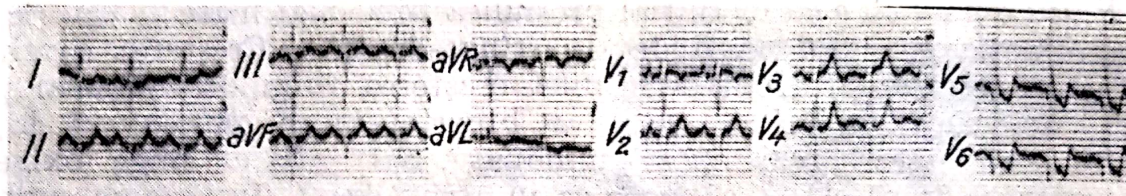 I III aVR V1 V3 V5
II aVF aVL V2 V4 V6